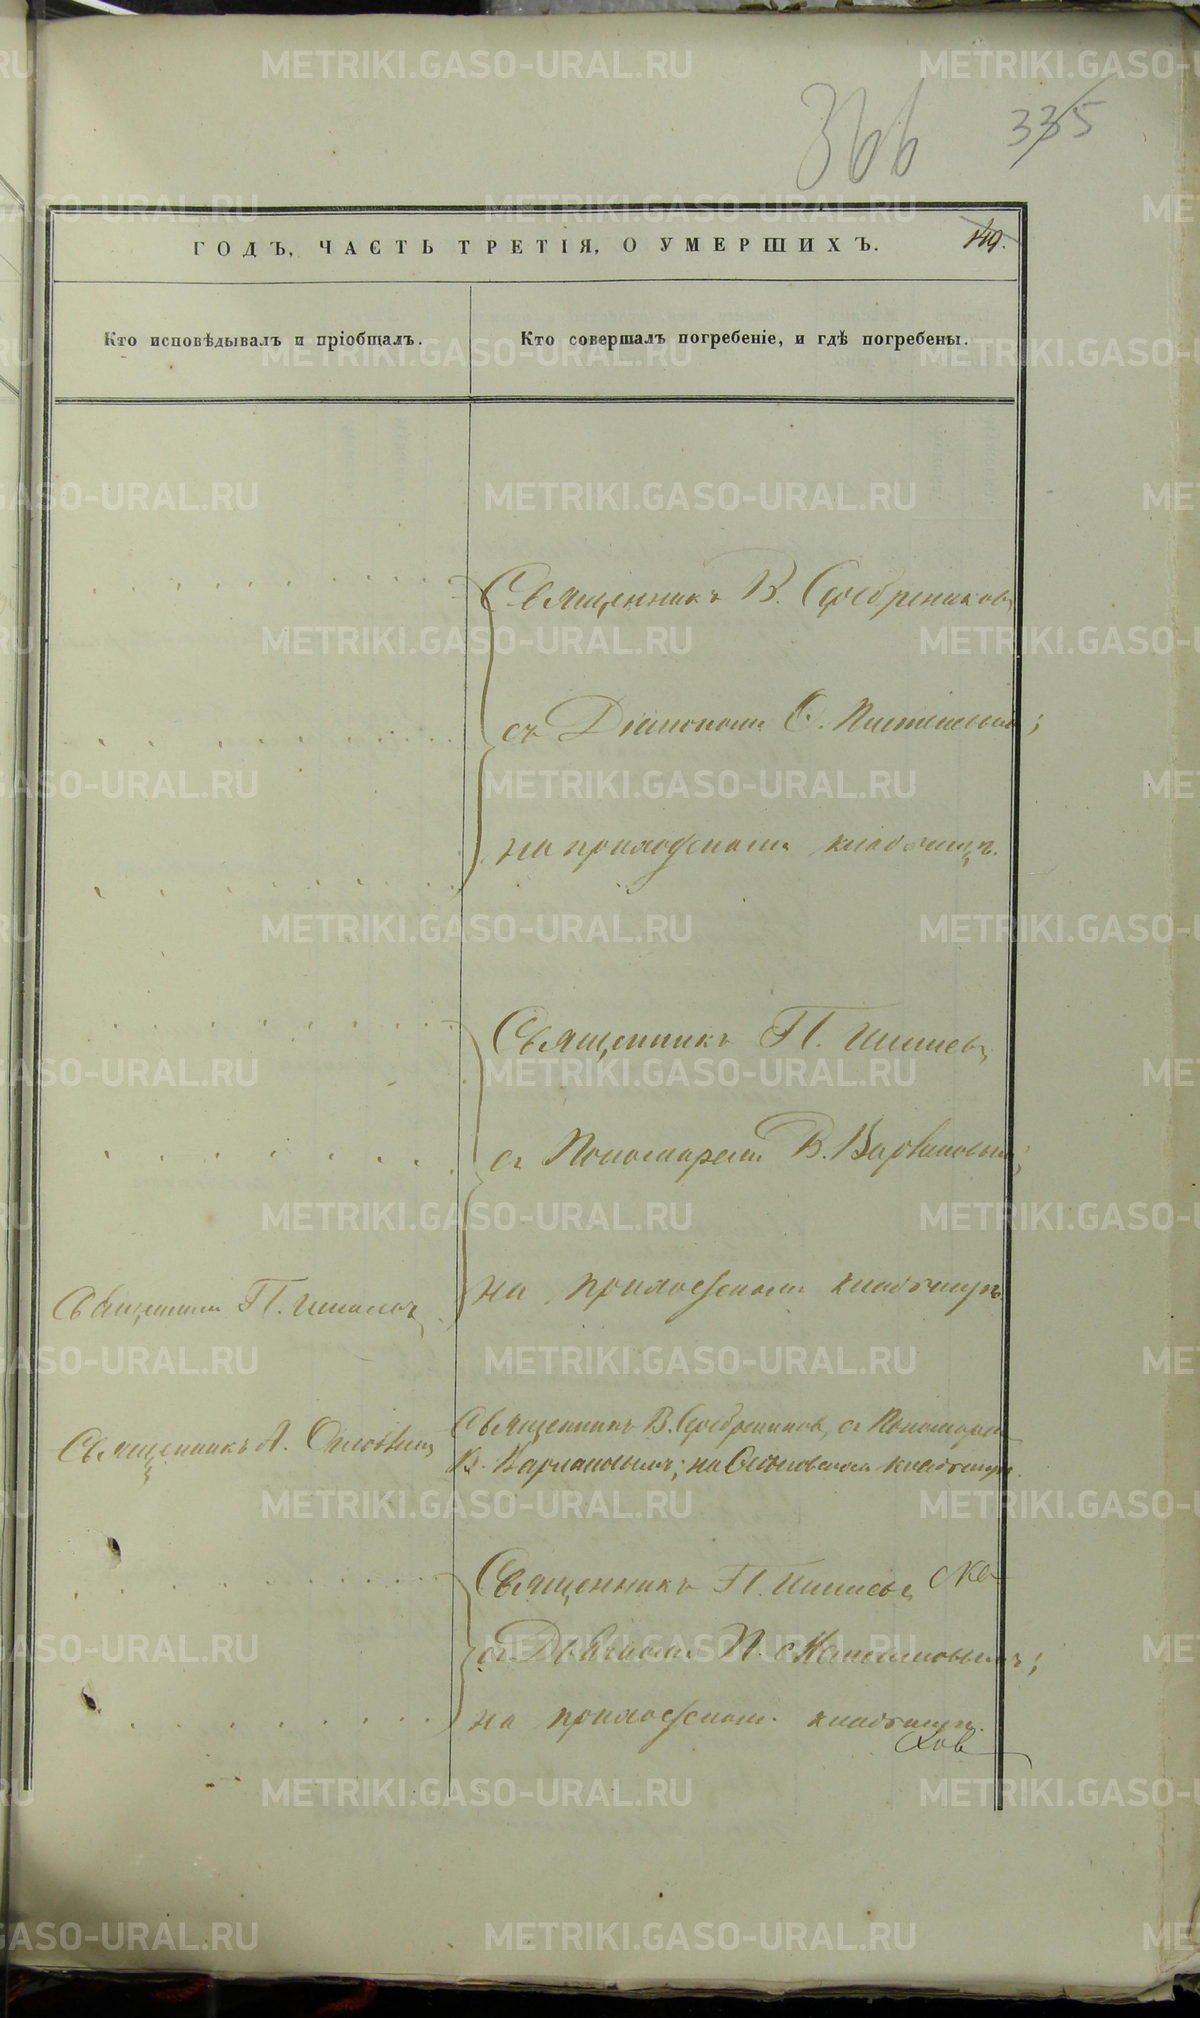 366 335
ГОДЪ, ЧАСТЬ ТРЕТІЯ, О УМЕРШИХЪ. 149.
Кто исповѣдывалъ и пріобщалъ.
Кто совершалъ погребеніе, и гдѣ погребены.
Священникъ В. Серебрениковъ
съ Діакономъ
на приходскомъ кладбищѣ.
Священникъ П.
съ Пономаремъ В.
на приходскомъ кладбищѣ
Священникъ П.
Священникъ А.
Священникъ В. Серебрениковъ, съ Пономаремъ
В. на кладбищѣ.
Священникъ П.
съ Дьячкомъ
на приходскомъ кладбищѣ.
METRIKI.GASO-URAL.RU